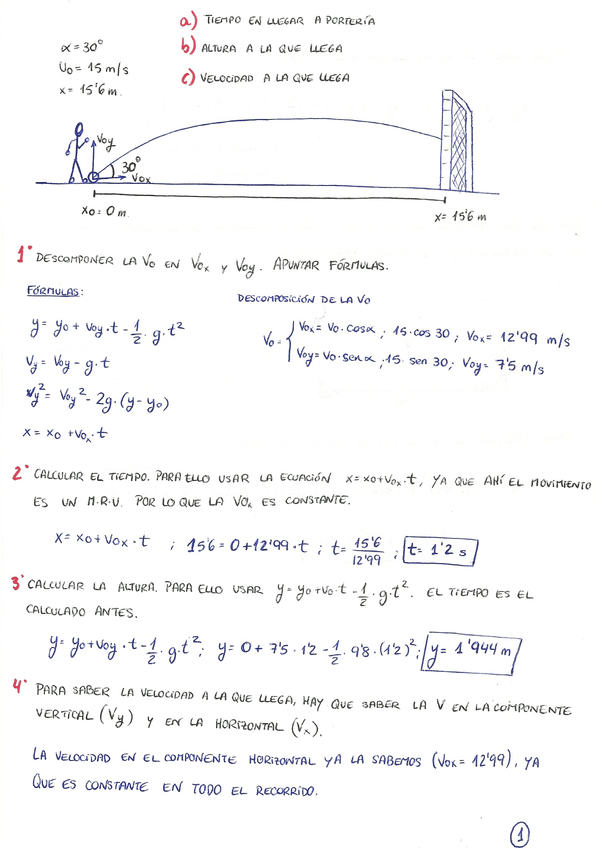 a) TIEMPO EN LLEGAR A PORTERÍA
b) ALTURA A LA QUE LLEGA
c) VELOCIDAD A LA QUE LLEGA
α = 30°
V₀ = 15 m/s
x = 15'6 m.
V₀y
30°
V₀x
x₀ = 0 m.
x = 15'6 m
1° DESCOMPONER LA V₀ EN V₀x Y V₀y. APUNTAR FÓRMULAS.
FÓRMULAS:
y = y₀ + V₀y·t - 1/2 · g·t²
Vy = V₀y - g·t
Vy² = V₀y² - 2g·(y - y₀)
x = x₀ + V₀x·t
DESCOMPOSICIÓN DE LA V₀
V₀ = { V₀x = V₀·cosα ; 15·cos 30 ; V₀x = 12'99 m/s
V₀y = V₀·senα ; 15· sen 30; V₀y = 7'5 m/s
2° CALCULAR EL TIEMPO. PARA ELLO USAR LA ECUACIÓN x = x₀ + V₀x·t, YA QUE AHÍ EL MOVIMIENTO
ES UN M.R.U. POR LO QUE LA V₀x ES CONSTANTE.
x = x₀ + V₀x·t ; 15'6 = 0 + 12'99·t ; t = 15'6/12'99 ; t = 1'2 s
3° CALCULAR LA ALTURA. PARA ELLO USAR y = y₀ + V₀·t - 1/2 · g·t². EL TIEMPO ES EL
CALCULADO ANTES.
y = y₀ + V₀y · t - 1/2 · g·t² ; y = 0 + 7'5 · 1'2 - 1/2 · 9'8 · (1'2)² ; y = 1'944 m
4° PARA SABER LA VELOCIDAD A LA QUE LLEGA, HAY QUE SABER LA V EN LA COMPONENTE
VERTICAL (Vy) Y EN LA HORIZONTAL (Vx).
LA VELOCIDAD EN EL COMPONENTE HORIZONTAL YA LA SABEMOS (V₀x = 12'99), YA
QUE ES CONSTANTE EN TODO EL RECORRIDO.
1